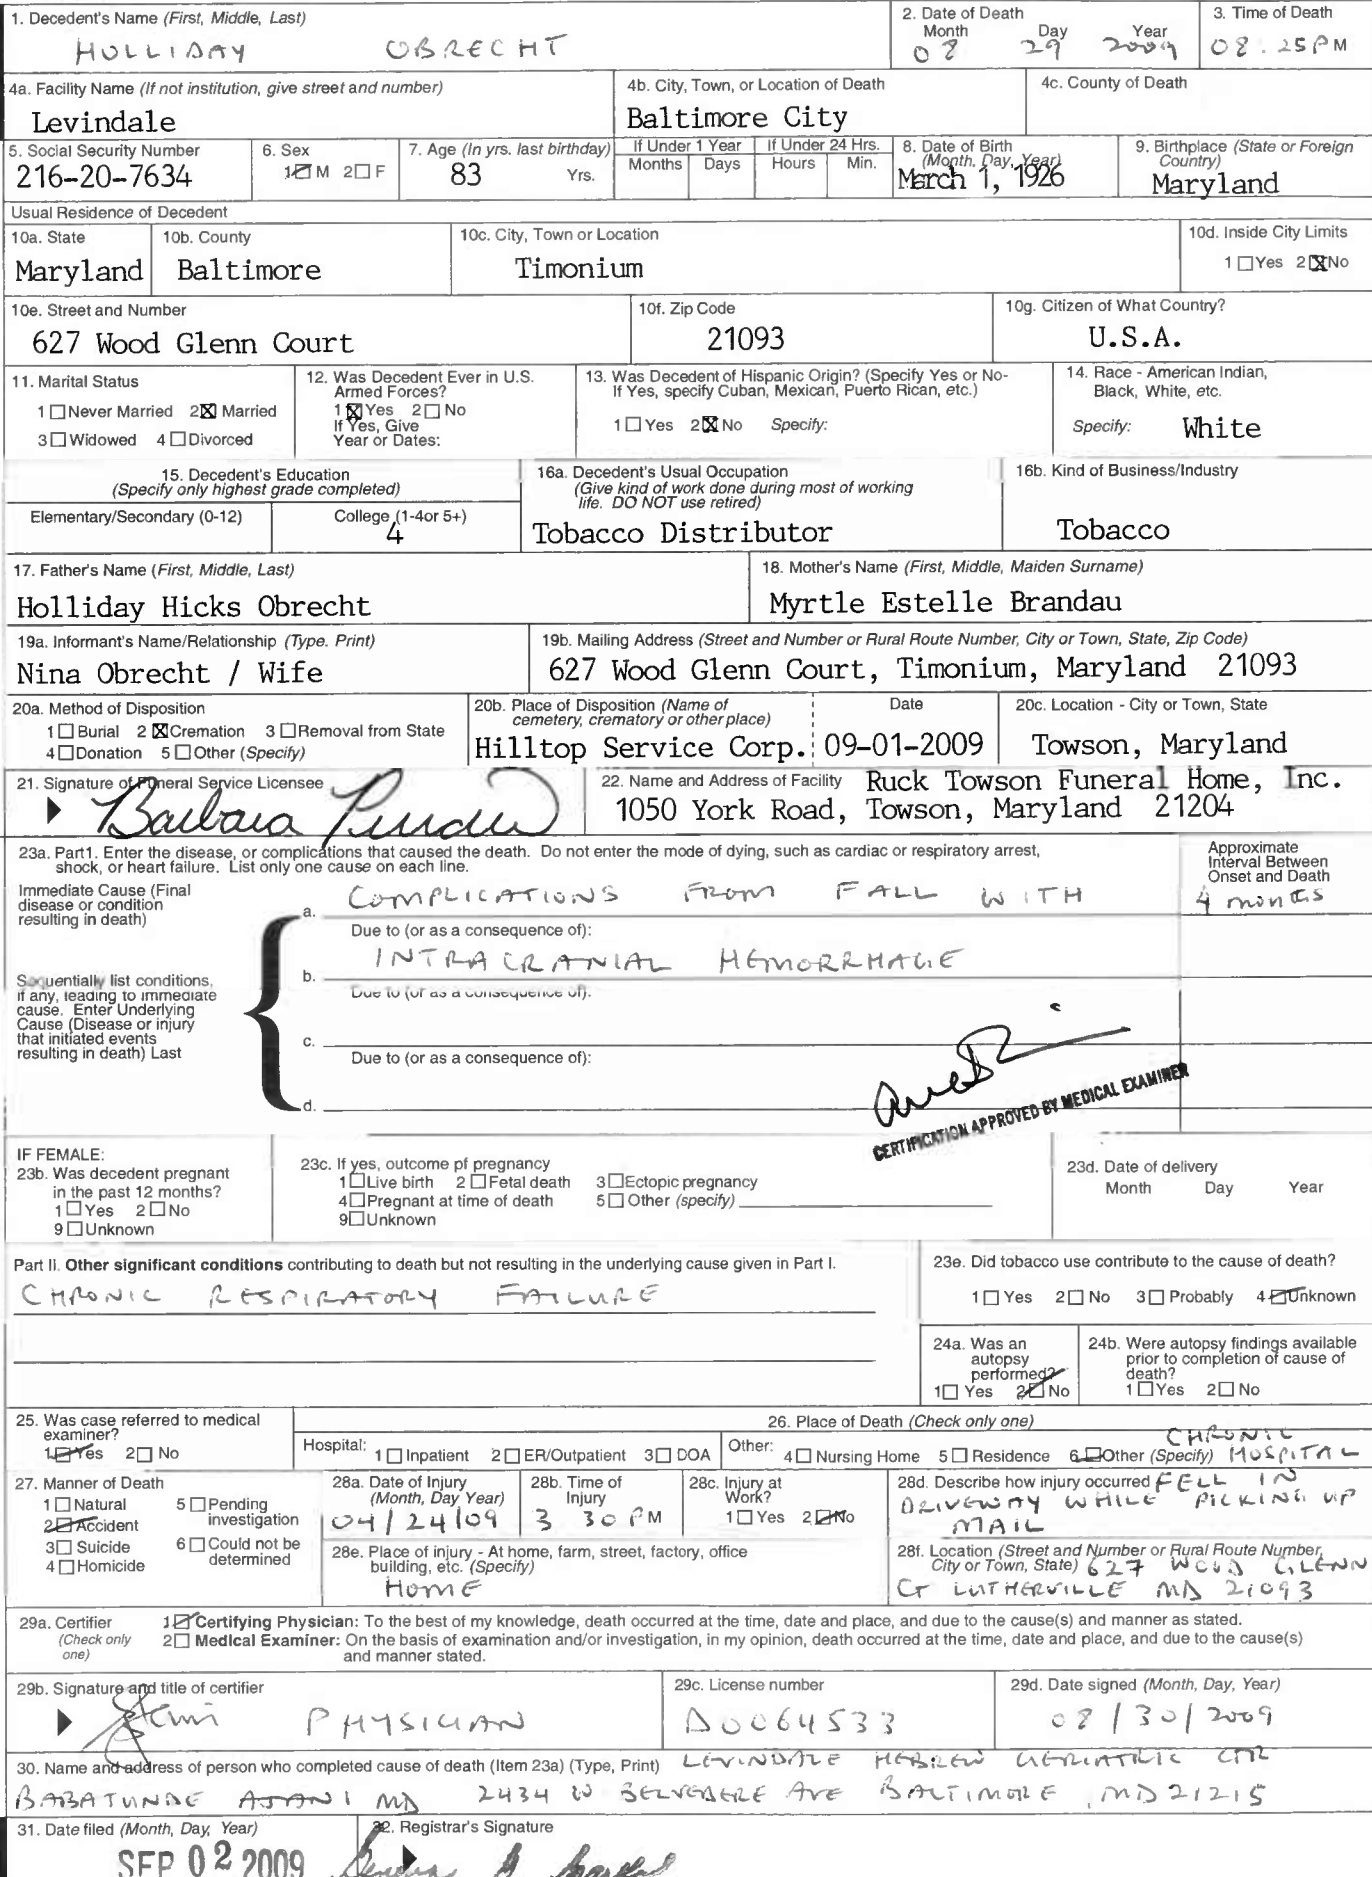 1. Decedent's Name (First, Middle, Last)
HOLLIDAY OBRECHT
2. Date of Death
Month Day Year
08 29 2009
3. Time of Death
08:25PM
4a. Facility Name (If not institution, give street and number)
Levindale
4b. City, Town, or Location of Death
Baltimore City
4c. County of Death
5. Social Security Number
216-20-7634
6. Sex
1☑M 2☐F
7. Age (In yrs. last birthday)
83 Yrs.
If Under 1 Year
Months Days
If Under 24 Hrs.
Hours Min.
8. Date of Birth
(Month, Day, Year)
March 1, 1926
9. Birthplace (State or Foreign
Country)
Maryland
Usual Residence of Decedent
10a. State
Maryland
10b. County
Baltimore
10c. City, Town or Location
Timonium
10d. Inside City Limits
1☐Yes 2☒No
10e. Street and Number
627 Wood Glenn Court
10f. Zip Code
21093
10g. Citizen of What Country?
U.S.A.
11. Marital Status
1☐Never Married 2☒Married
3☐Widowed 4☐Divorced
12. Was Decedent Ever in U.S.
Armed Forces?
1☒Yes 2☐No
If Yes, Give
Year or Dates:
13. Was Decedent of Hispanic Origin? (Specify Yes or No-
If Yes, specify Cuban, Mexican, Puerto Rican, etc.)
1☐Yes 2☒No Specify:
14. Race - American Indian,
Black, White, etc.
Specify: White
15. Decedent's Education
(Specify only highest grade completed)
Elementary/Secondary (0-12)
College (1-4or 5+)
4
16a. Decedent's Usual Occupation
(Give kind of work done during most of working
life. DO NOT use retired)
Tobacco Distributor
16b. Kind of Business/Industry
Tobacco
17. Father's Name (First, Middle, Last)
Holliday Hicks Obrecht
18. Mother's Name (First, Middle, Maiden Surname)
Myrtle Estelle Brandau
19a. Informant's Name/Relationship (Type. Print)
Nina Obrecht / Wife
19b. Mailing Address (Street and Number or Rural Route Number, City or Town, State, Zip Code)
627 Wood Glenn Court, Timonium, Maryland 21093
20a. Method of Disposition
1☐Burial 2☒Cremation 3☐Removal from State
4☐Donation 5☐Other (Specify)
20b. Place of Disposition (Name of
cemetery, crematory or other place)
Hilltop Service Corp.
Date
09-01-2009
20c. Location - City or Town, State
Towson, Maryland
21. Signature of Funeral Service Licensee
Barbara
22. Name and Address of Facility Ruck Towson Funeral Home, Inc.
1050 York Road, Towson, Maryland 21204
23a. Part1. Enter the disease, or complications that caused the death. Do not enter the mode of dying, such as cardiac or respiratory arrest,
shock, or heart failure. List only one cause on each line.
Approximate
Interval Between
Onset and Death
4 months
Immediate Cause (Final
disease or condition
resulting in death)
a. COMPLICATIONS FROM FALL WITH
Due to (or as a consequence of):
b. INTRACRANIAL HEMORRHAGE
Due to (or as a consequence of):
Sequentially list conditions,
if any, leading to immediate
cause. Enter Underlying
Cause (Disease or injury
that initiated events
resulting in death) Last
c.
Due to (or as a consequence of):
d.
CERTIFICATION APPROVED BY MEDICAL EXAMINER
IF FEMALE:
23b. Was decedent pregnant
in the past 12 months?
1☐Yes 2☐No
9☐Unknown
23c. If yes, outcome pf pregnancy
1☐Live birth 2☐Fetal death 3☐Ectopic pregnancy
4☐Pregnant at time of death 5☐Other (specify)
9☐Unknown
23d. Date of delivery
Month Day Year
Part II. Other significant conditions contributing to death but not resulting in the underlying cause given in Part I.
CHRONIC RESPIRATORY FAILURE
23e. Did tobacco use contribute to the cause of death?
1☐Yes 2☐No 3☐Probably 4☑Unknown
24a. Was an
autopsy
performed?
1☐Yes 2☑No
24b. Were autopsy findings available
prior to completion of cause of
death?
1☐Yes 2☐No
25. Was case referred to medical
examiner?
1☑Yes 2☐No
26. Place of Death (Check only one)
Hospital: 1☐Inpatient 2☐ER/Outpatient 3☐DOA
Other: 4☐Nursing Home 5☐Residence 6☑Other (Specify) CHRONIC HOSPITAL
27. Manner of Death
1☐Natural 5☐Pending investigation
2☑Accident
3☐Suicide 6☐Could not be determined
4☐Homicide
28a. Date of Injury
(Month, Day Year)
04/24/09
28b. Time of
Injury
3 30 PM
28c. Injury at
Work?
1☐Yes 2☑No
28d. Describe how injury occurred FELL IN
DRIVEWAY WHILE PICKING UP
MAIL
28e. Place of injury - At home, farm, street, factory, office
building, etc. (Specify)
HOME
28f. Location (Street and Number or Rural Route Number,
City or Town, State) 627 WOOD GLENN
CT LUTHERVILLE MD 21093
29a. Certifier
(Check only
one)
1☑Certifying Physician: To the best of my knowledge, death occurred at the time, date and place, and due to the cause(s) and manner as stated.
2☐Medical Examiner: On the basis of examination and/or investigation, in my opinion, death occurred at the time, date and place, and due to the cause(s)
and manner stated.
29b. Signature and title of certifier
PHYSICIAN
29c. License number
D0064533
29d. Date signed (Month, Day, Year)
08/30/2009
30. Name and address of person who completed cause of death (Item 23a) (Type, Print) LEVINDALE HEBREW GERIATRIC CTR
BABATUNDE AJANI MD 2434 W BELVEDERE AVE BALTIMORE, MD 21215
31. Date filed (Month, Day, Year)
SEP 02 2009
32. Registrar's Signature